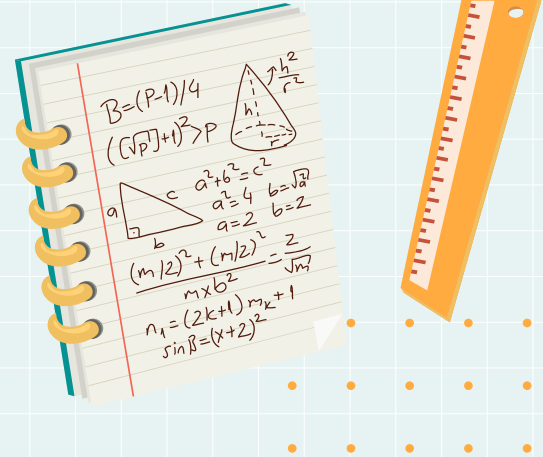 B=(P-1)/4
([√P]+1)²>P
h²/r²
h
r
a²+b²=c²
a²=4
b=√a²
a=2
b=2
a
c
b
(m/2)²+(m/2)²/m×b²=2/√m
n₁=(2k+1)mₖ+1
sinβ=(x+2)²